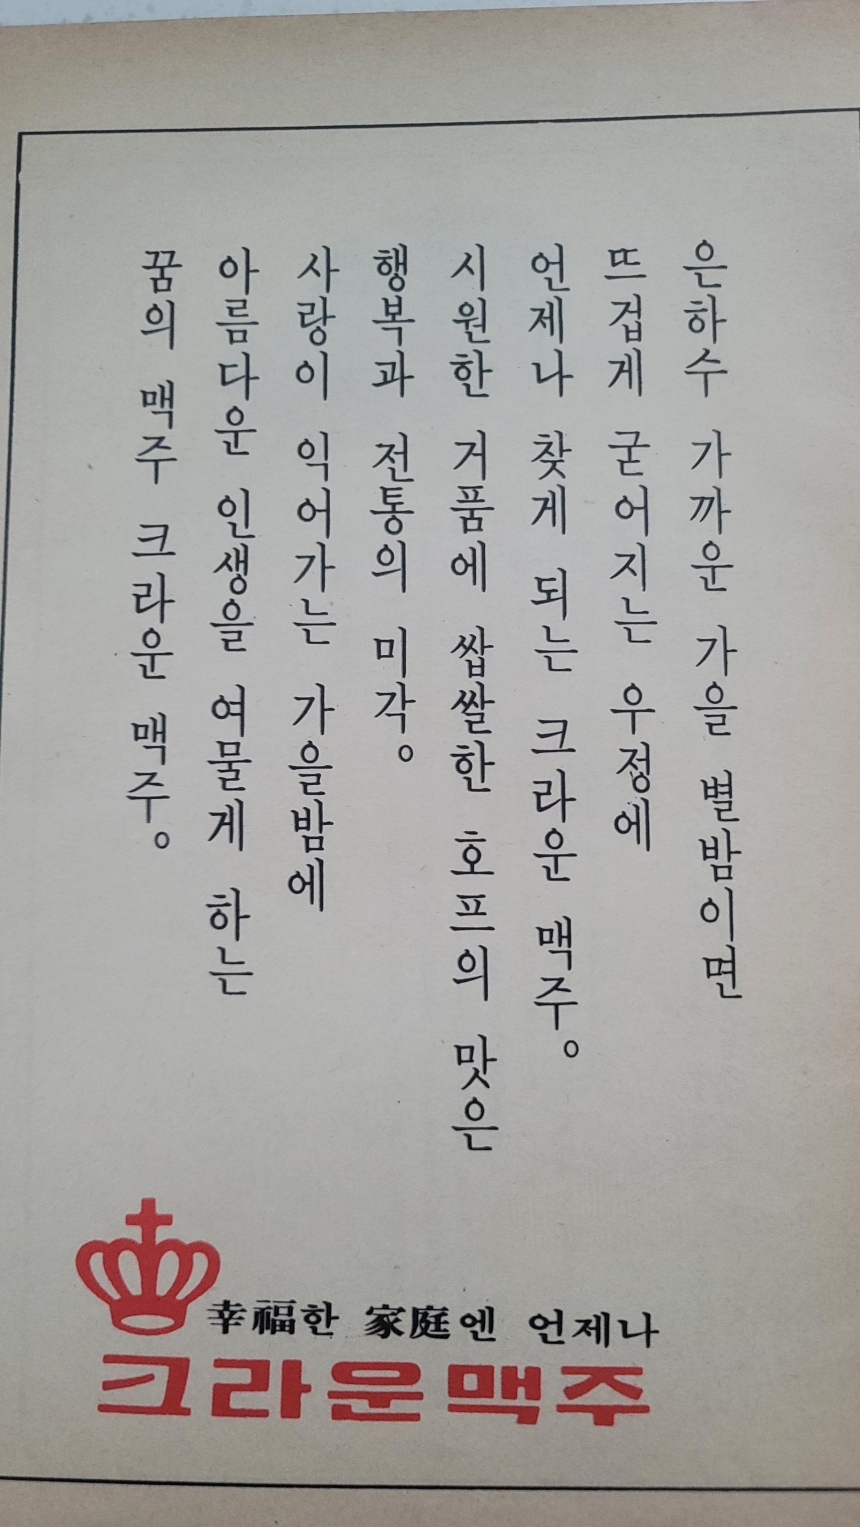 은하수 가까운 가을 별밤이면
뜨겁게 굳어지는 우정에
언제나 찾게 되는 크라운 맥주。
시원한 거품에 쌉쌀한 호프의 맛은
행복과 전통의 미각。
사랑이 익어가는 가을밤에
아름다운 인생을 여물게 하는
꿈의 맥주 크라운 맥주。
幸福한 家庭엔 언제나
크라운맥주